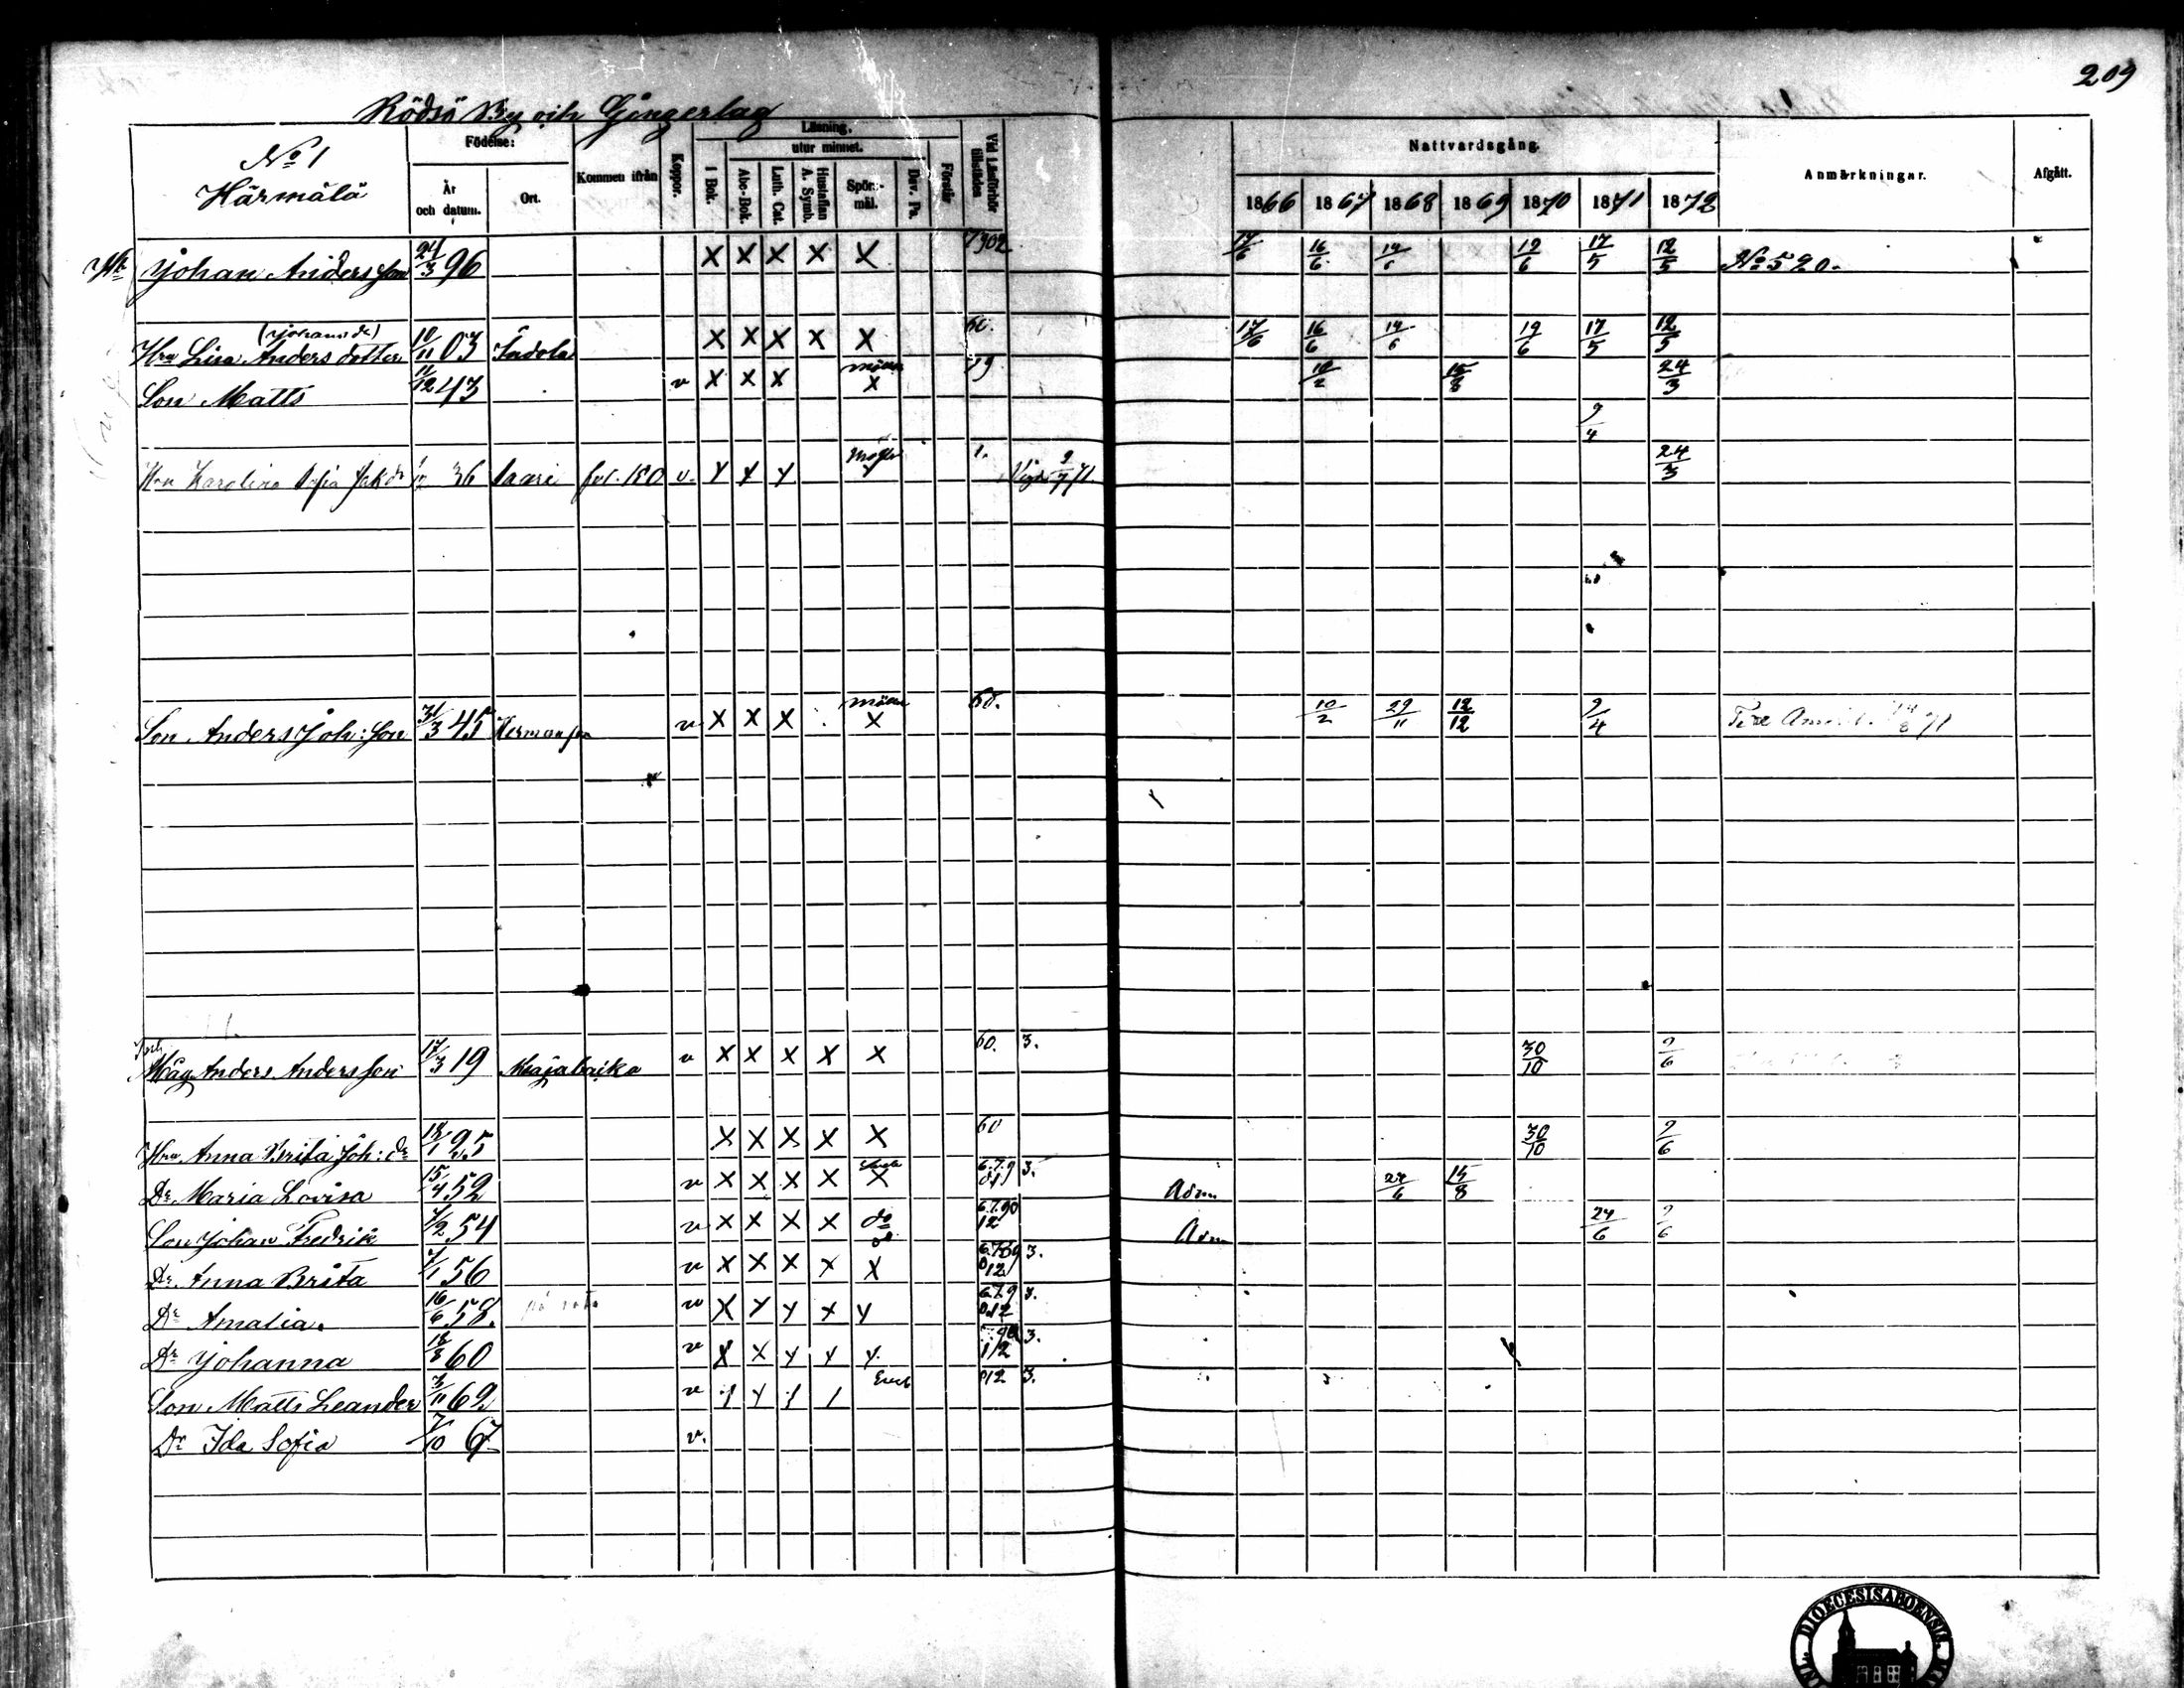 209
Rödsö By och Gångerlag
No 1
Härmälä
Födelse:
År och datum.
Ort.
Kommen ifrån
Koppor.
Läsning.
utur minnet.
I Bok.
Abc-Bok.
Luth. Cat.
Hustaflan A. Symb.
Spörsmål.
Dav. Ps.
Förstår
Vid Läsförhör tillstädes
Nattvardsgång.
1866 1867 1868 1869 1870 1871 1872
Anmärkningar.
Afgått.
Johan Andersson 24/3 96 X X X X X 17/6 16/6 14/6 19/6 17/5 12/5 No 520.
Hru Lisa Andersdotter 10/11 03 X X X X X 60. 17/6 16/6 14/6 19/6 17/5 12/5
Son Matts 11/12 43 v X X X X 10/2 15/8 24/3
9/4
Hru Karolina Sofia Jak dr 36 Saari fol. 180 v. X X X 1. Vigd 9/7 71. 24/3
Son Anders Joh: Son 31/3 45 v X X X X 60. 10/2 29/11 12/12 9/4
Måg Anders Andersson 17/3 19 v X X X X X 60. 3. 30/10 9/6
Hru Anna Brita Joh: dr 18/1 25 X X X X X 60 30/10 9/6
Dr Maria Lovisa 15/4 52 v X X X X X 3. Adm 15/8
Son Johan Fredrik 54 v X X X X do 12 Adm 24/6 9/6
Dr Anna Brita 7/1 56 v X X X X X 12 3.
Dr Amalia. 16/6 58. v X X X X X 3.
Dr Johanna 18/8 60 v X X X X X 3.
Son Matts Leander 3/11 62 v 3.
Dr Ida Sofia 7/10 67 v.
DIOECESIS ABOENSIS